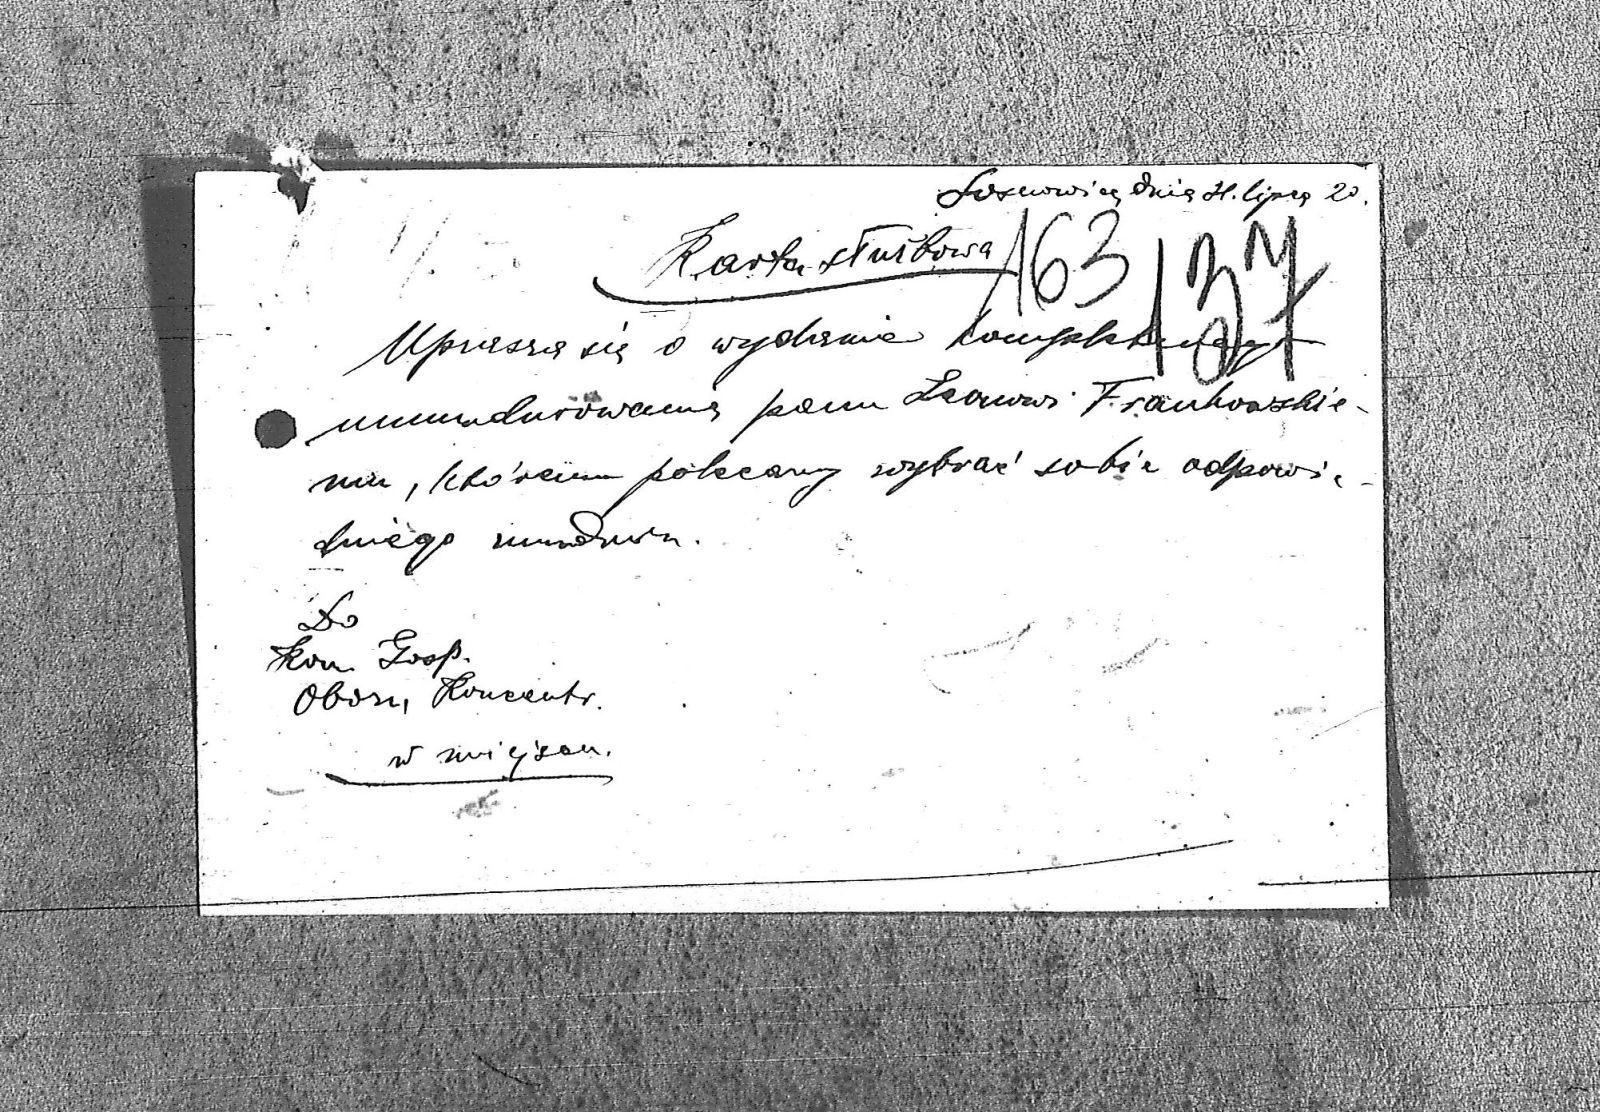 Sosnowice, dnia 21. lipca 20.
Karta służbowa
163
137
Uprasza się o wydanie kompletnego
umundurowania panu Leonowi Frankowskie-
mu, któremu polecamy wybrać sobie odpowie-
dniego munduru.
Do
Kom Gosp.
Obozu Koncentr.
w miejscu.